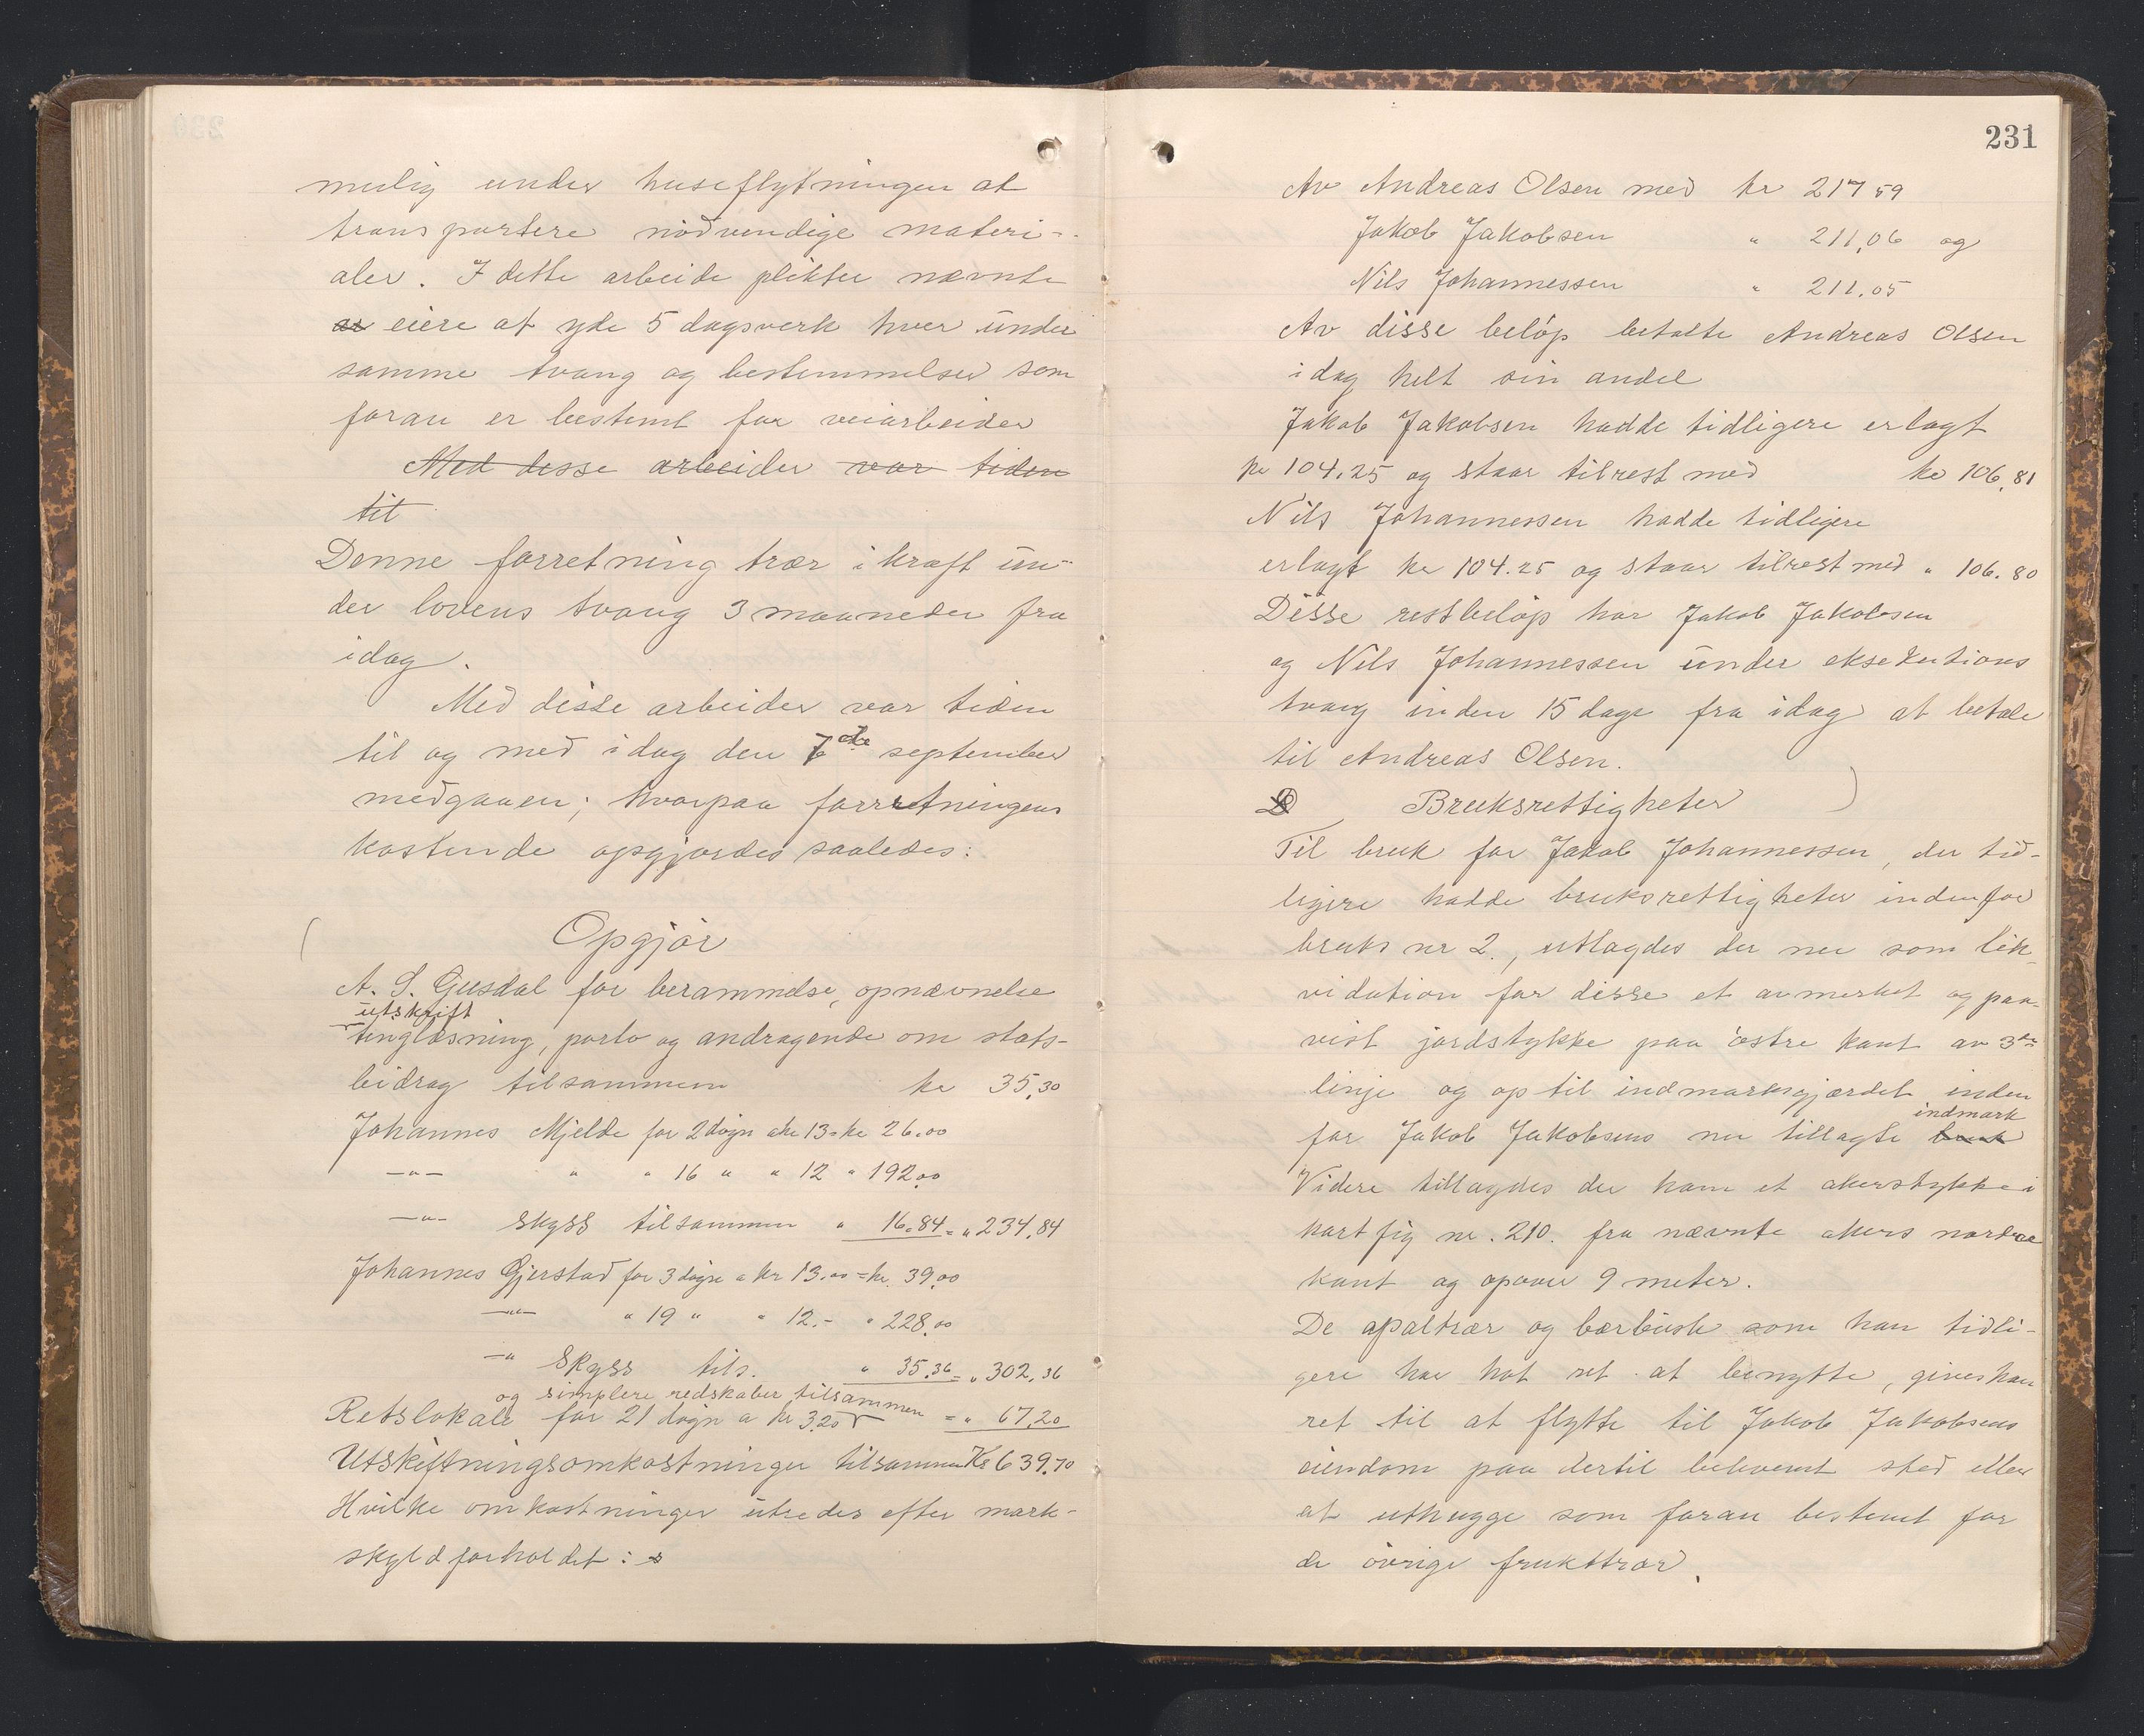 mulig under huseflytningen at
transportere nödvendige materi-
aler. I dette arbeide plikter nævnte
eiere at yde 5 dagsverk hver under
samme tvang og bestemmelser som
foran er bestemt for veiarbeider
Med desse arbeider var tiden
til
Denne forretning trær i kraft un-
der lovens tvang 3 maaneder fra
idag.
Med disse arbeider var tiden
til og med idag den 7de september
medgaaen; hvorpaa forretningens
kostende opgjordes saaledes:
Opgjör
A. S. Gusdal for berammelse, opnævnelse
utskrift
tinglæsning, porto og andragende om stats-
bidrag tilsammen kr 35,30
Johannes Mjelde for 2 dögn a kr 13 = kr 26.00
-"- " " 16 " " 12 " 192,00
-"- skyss tilsammen " 16.84 = " 234,84
Johannes Gjerstad for 3 dögn a kr 13.00 = kr. 39,00
-"- " 19 " " 12.- " 228,00
-" Skyss tils. " 35.36 = " 302,36
og simplere redskaber tilsammen
Retslokale for 21 dögn a kr 3.20 = " 67,20
Utskiftningsomkostninger tilsammen Kr 639,70
Hvilke omkostninger utredes efter mark-
skyldforholdet:
231
Av Andreas Olsen med kr 217 59
Jakob Jakobsen " 211,06 og
Nils Johannessen " 211.05
Av disse belöp betalte Andreas Olsen
idag helt sin andel
Jakob Jakobsen hadde tidligere erlagt
kr 104.25 og staar tilrest med kr 106,81
Nils Johannessen hadde tidligere
erlagt kr 104.25 og staar tilrest med " 106.80
Disse restbelöp har Jakob Jakobsen
og Nils Johannessen under eksekutions
tvang inden 15 dage fra idag at betale
til Andreas Olsen.
Bruksrettigheter
Til bruk for Jakob Johannessen, der tid-
ligere hadde bruksrettigheter indenfor
bruks nr 2., utlagdes der nu som lik-
vidation for disse et avmerket og paa-
vist jordstykke paa östre kant av 3die
linje og op til indmarksgjærdet inden
indmark
for Jakob Jakobsens nu tillagte bruk
Videre tillagdes der ham et akerstykke i
kart fig nr. 210. fra nævnte akers nordre
kant og opover 9 meter.
De apaltrær og bærbusk som han tidli-
gere har hat ret at benytte, gives han
ret til at flytte til Jakob Jakobsens
eiendom paa dertil bekvemt sted eller
at uthugge som foran bestemt for
de övrige frukttrær.